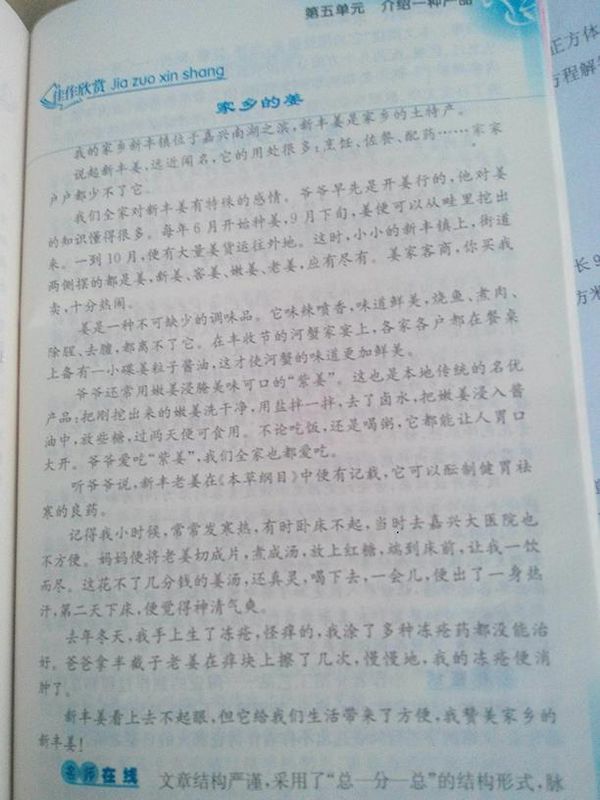 第五单元 介绍一种产品
佳作欣赏 Jia zuo xin shang
家乡的姜
我的家乡新丰镇位于嘉兴南湖之滨，新丰姜是家乡的土特产。
说起新丰姜，远近闻名，它的用处很多：烹饪、佐餐、配药……家家
户户都少不了它。
我们全家对新丰姜有特殊的感情。爷爷早先是开姜行的，他对姜
的知识懂得很多。每年6月开始种姜，9月下旬，姜便可以从畦里挖出
来。一到10月，便有大量姜货运往外地。这时，小小的新丰镇上，街道
两侧摆的都是姜，新姜、窖姜、嫩姜、老姜，应有尽有。姜家客商，你买我
卖，十分热闹。
姜是一种不可缺少的调味品。它味辣喷香，味道鲜美，烧鱼、煮肉、
除腥、去膻，都离不了它。在丰收节的河蟹家宴上，各家各户都在餐桌
上备有一小碟姜粒子酱油，这才使河蟹的味道更加鲜美。
爷爷还常用嫩姜浸腌美味可口的“紫姜”。这也是本地传统的名优
产品：把刚挖出来的嫩姜洗干净，用盐拌一拌，去了卤水，把嫩姜浸入酱
油中，放些糖，过两天便可食用。不论吃饭，还是喝粥，它都能让人胃口
大开。爷爷爱吃“紫姜”，我们全家也都爱吃。
听爷爷说，新丰老姜在《本草纲目》中便有记载，它可以酝制健胃祛
寒的良药。
记得我小时候，常常发寒热，有时卧床不起，当时去嘉兴大医院也
不方便。妈妈便将老姜切成片，煮成汤，放上红糖，端到床前，让我一饮
而尽。这花不了几分钱的姜汤，还真灵，喝下去，一会儿，便出了一身热
汗，第二天下床，便觉得神清气爽。
去年冬天，我手上生了冻疮，怪痒的，我涂了多种冻疮药都没能治
好。爸爸拿半截子老姜在痒块上擦了几次，慢慢地，我的冻疮便消
肿了。
新丰姜看上去不起眼，但它给我们生活带来了方便，我赞美家乡的
新丰姜！
名师在线 文章结构严谨，采用了“总—分—总”的结构形式，脉
正方体
方程解
长9
方米